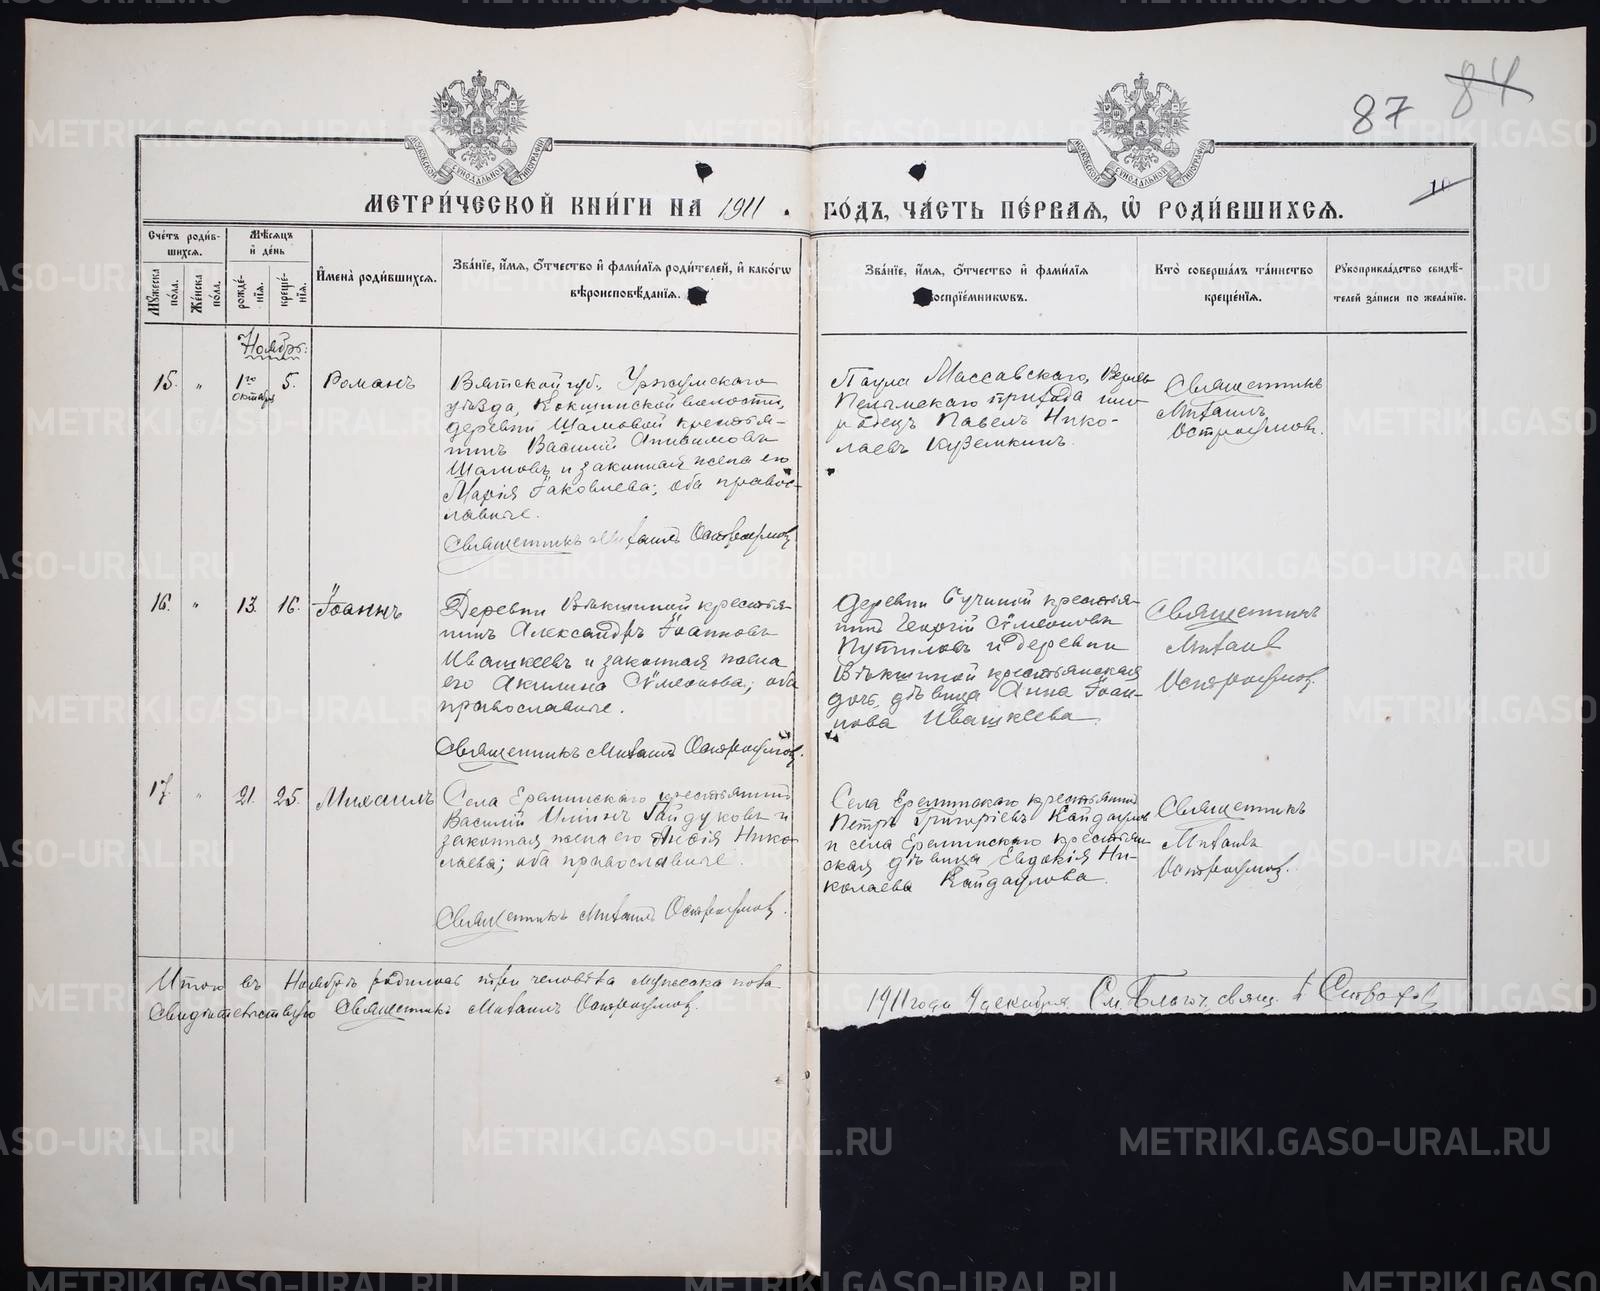 87 84
МЕТРИ́ЧЕСКОЙ КНИ́ГИ НА 1911 ГО́ДЪ, ЧА́СТЬ ПЕ́РВАЯ, Ѿ РОДИ́ВШИХСЯ.
Сче́тъ роди́в-
шихся.
Мꙋ́жеска по́ла.
Же́нска по́ла.
Мѣ́сяцъ
и҆ де́нь
рожде́-
нїѧ.
креще́-
нїѧ.
И҆мена̀ роди́вшихся.
Зва́нїе, и҆́мѧ, ѻ҆́тчество и҆ фами́лїѧ роди́телей, и҆ како́гѡ
вѣроисповѣ́данїѧ.
Зва́нїе, и҆́мѧ, ѻ҆́тчество и҆ фами́лїѧ
воспрїе́мникѡвъ.
Кто̀ соверша́лъ та́инство
креще́нїѧ.
Рꙋкоприкла́дство свидѣ́-
телей за́писи по жела́нїю.
Ноябрь:
15. " 1го октября 5. Романъ
Вятской губ., Уржумскаго
уѣзда, Кокшинской волости,
деревни Шамовой крестья-
нинъ Василий Анисимовъ
Шамовъ и законная жена его
Марія Іаковлева; оба право-
славные.
Священникъ Михаилъ Остроумовъ
Паула Массавскаго, Верхъ
Пелымскаго прихода ино-
родецъ Павелъ Нико-
лаевъ Куземкинъ.
Священникъ
Михаилъ
Остроумовъ.
16. " 13. 16. Іоаннъ
Деревни Векшиной крестья-
нинъ Александръ Іоанновъ
Ивашкеевъ и законная жена
его Акилина Симеонова; оба
православные.
Священникъ Михаилъ Остроумовъ.
Деревни Сучиной крестья-
нинъ Георгій Симеоновъ
Путиловъ и деревни
Векшиной крестьянская
дочь, дѣвица Анна Іоан-
нова Ивашкеева.
Священникъ
Михаилъ
Остроумовъ.
17. " 21. 25. Михаилъ
Села Ереминскаго крестьянинъ
Василій Илиинъ Гайдуковъ и
законная жена его Анисія Нико-
лаева; оба православные.
Священникъ Михаилъ Остроумовъ.
Села Ереминскаго крестьянинъ
Петръ Григоріевъ Кайдауловъ
и села Ереминскаго крестьян-
ская дѣвица Евдокія Ни-
колаева Кайдаулова.
Священникъ
Михаилъ
Остроумовъ.
Итого въ Ноябрѣ родилось три человѣка мужеска пола
Свидѣтельствую Священникъ Михаилъ Остроумовъ.
1911 года 9 декабря См. Благоч. свящ.
METRIKI.GASO-URAL.RU